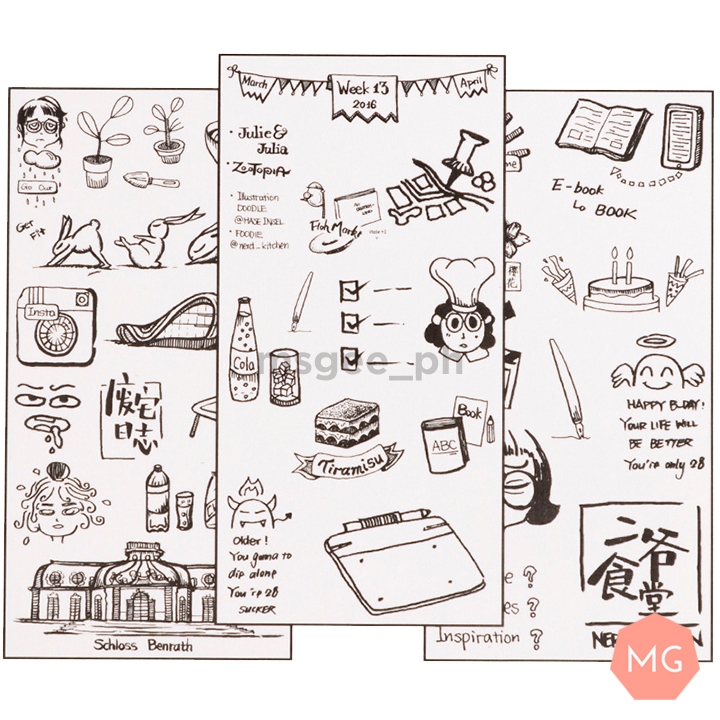 Go Out
Get
Fit
Insta
废宅
日志
Schloss Benrath
March
Week 13
2016
April
· Julie &
Julia
· Zootopia
· Illustration
DOODLE
@HASE INSEL
· FOODIE
@nerd_kitchen
Floh Markt
Cola
msgee_ph
Book
ABC
Tiramisu
Older!
You gonna to
dip alone
You're 28
SUCKER
E-book
to BOOK
櫻花
HAPPY B-DAY!
YOUR LIFE WILL
BE BETTER
You're only 28
二爷
食堂
Inspiration ?
MG